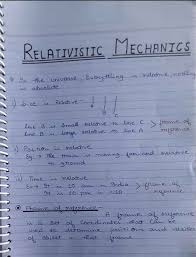 RELATIVISTIC MECHANICS
In the universe, Everything is relative, nothing
is absolute.
i) Size is Relative -
A B C
Line B is small relative to line C > frame of
Line B is large relative to line A reference
ii) Position is relative
Eg → The train is moving forward relative
to ground
iii) Time is relative
Eg → It is 10 am in India > frame of
It is 10 pm in reference
Frame of reference -
A frame of reference
is a set of coordinates that can be
used to determine positions and velocities
of object in that frame